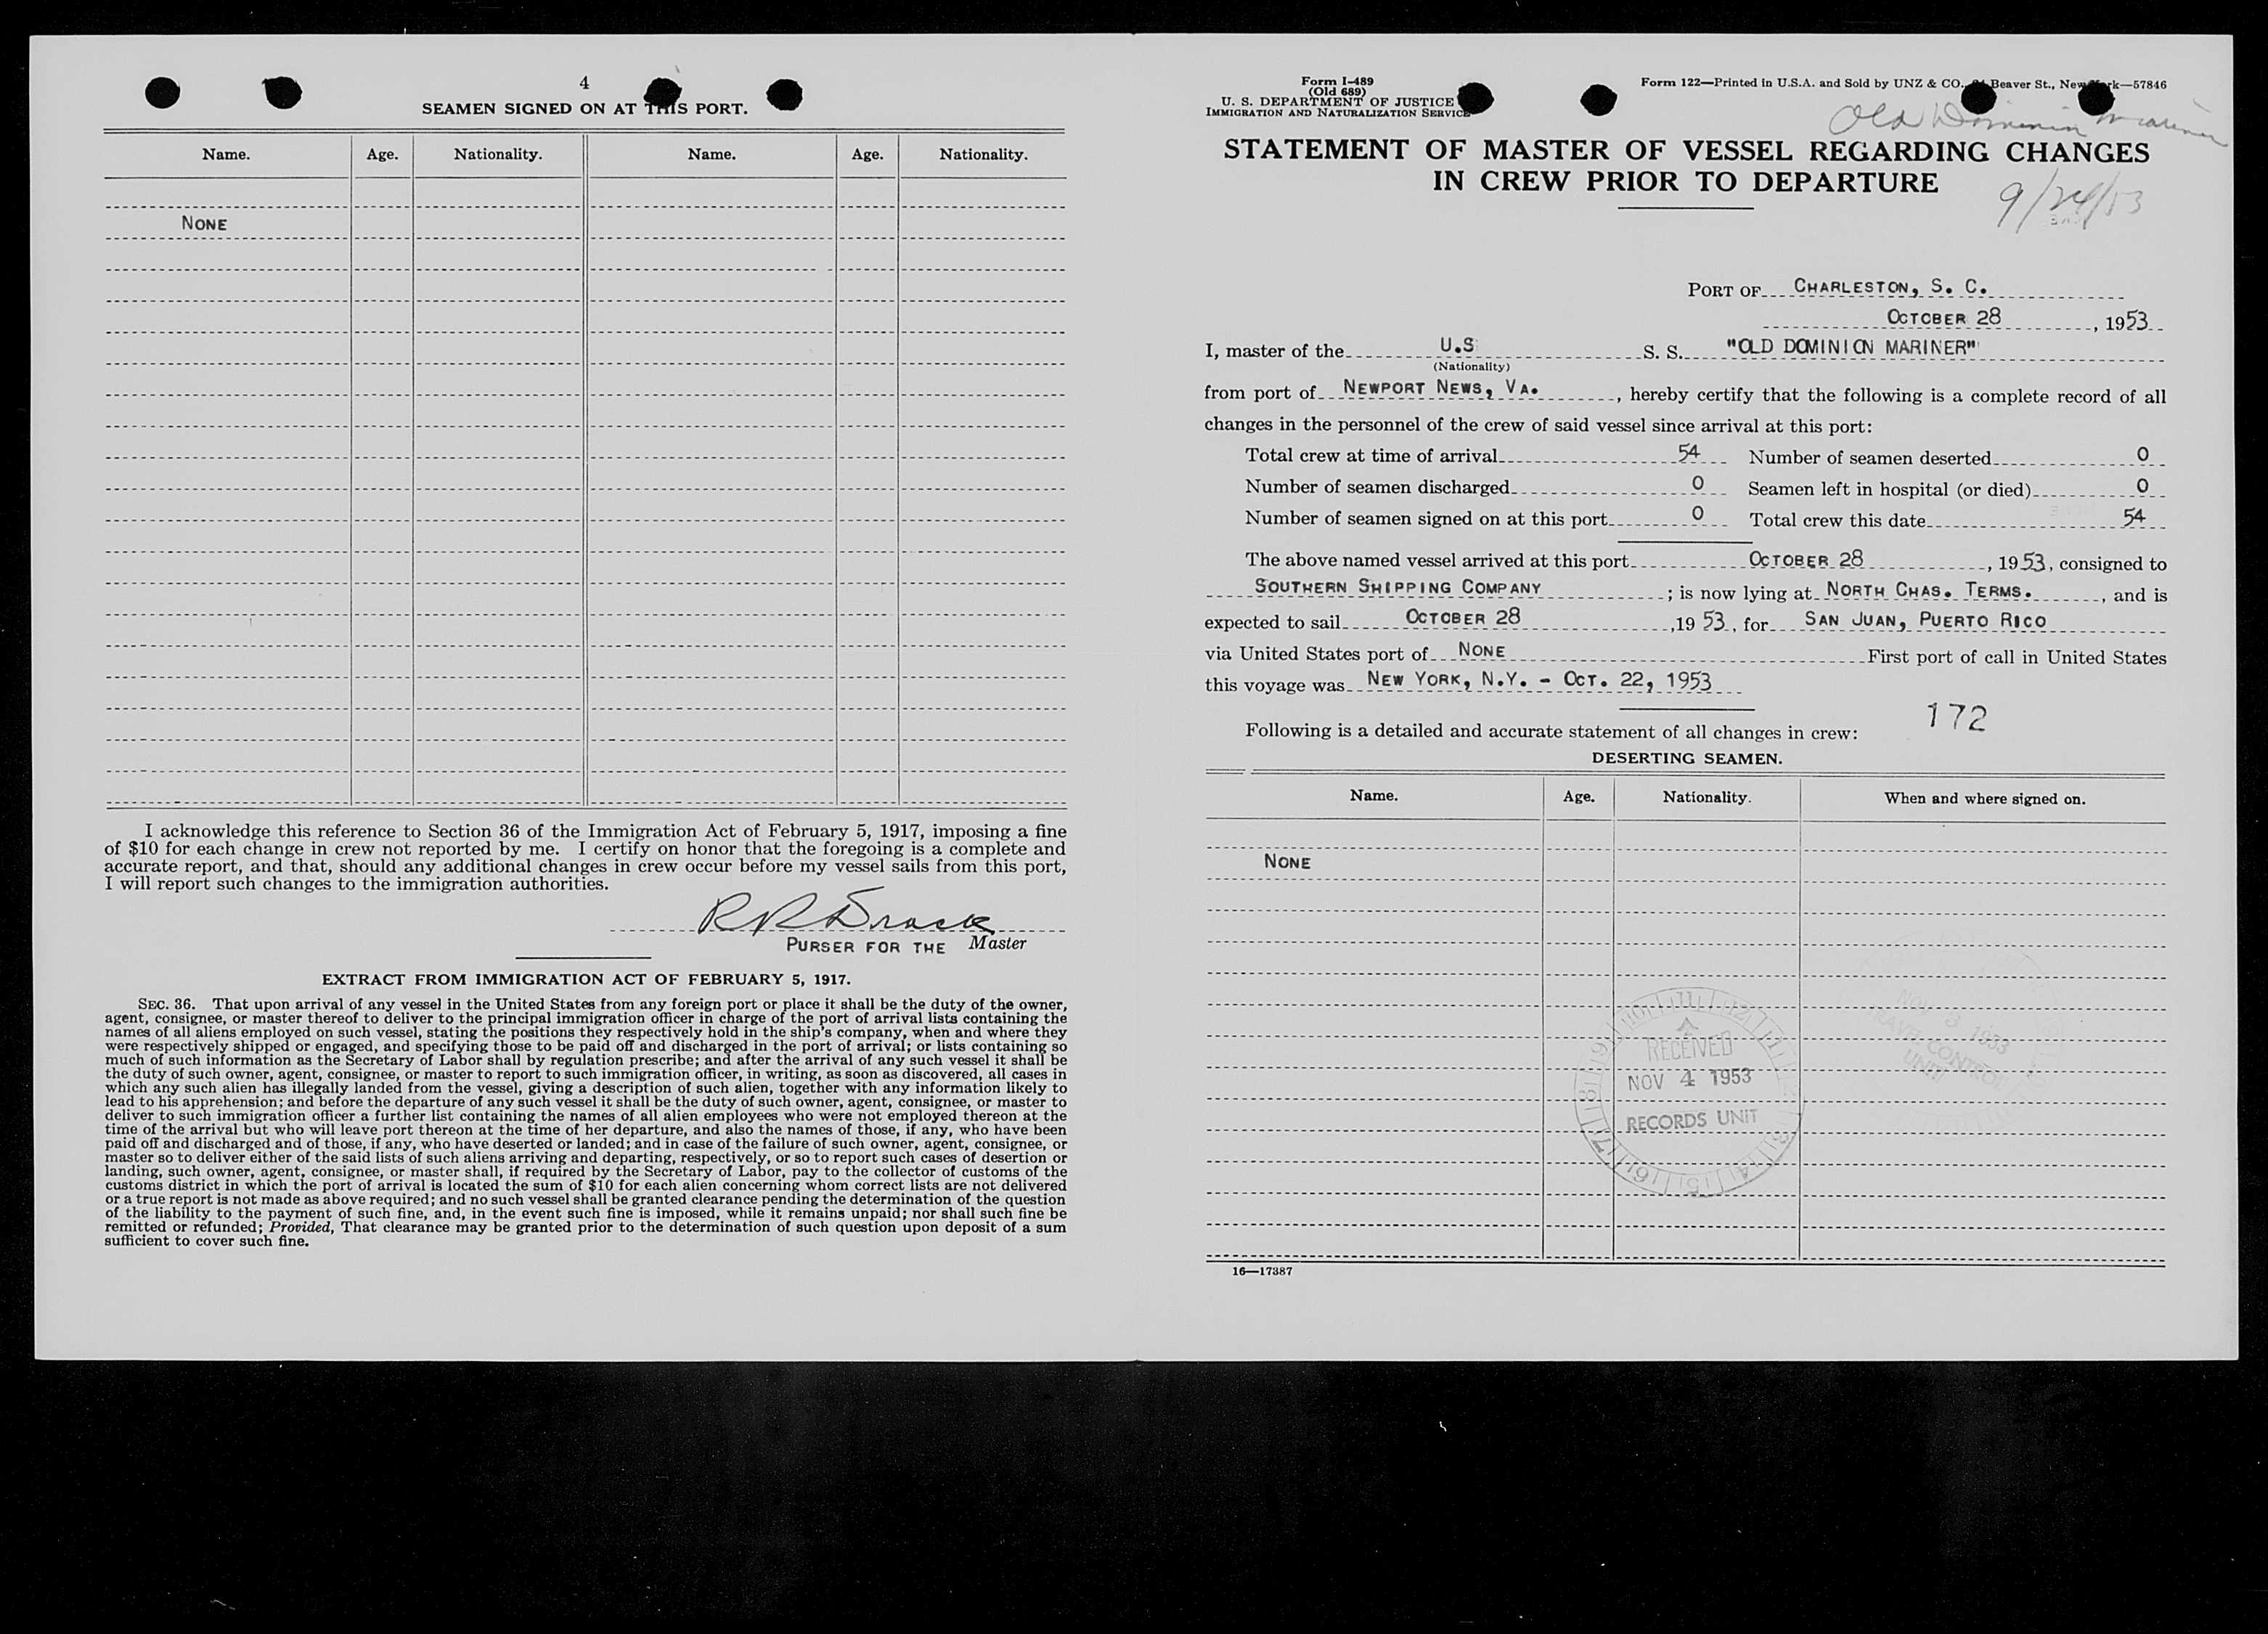 4
SEAMEN SIGNED ON AT THIS PORT.
Name. Age. Nationality. Name. Age. Nationality.
NONE
I acknowledge this reference to Section 36 of the Immigration Act of February 5, 1917, imposing a fine
of $10 for each change in crew not reported by me. I certify on honor that the foregoing is a complete and
accurate report, and that, should any additional changes in crew occur before my vessel sails from this port,
I will report such changes to the immigration authorities.
PURSER FOR THE Master
EXTRACT FROM IMMIGRATION ACT OF FEBRUARY 5, 1917.
SEC. 36. That upon arrival of any vessel in the United States from any foreign port or place it shall be the duty of the owner,
agent, consignee, or master thereof to deliver to the principal immigration officer in charge of the port of arrival lists containing the
names of all aliens employed on such vessel, stating the positions they respectively hold in the ship's company, when and where they
were respectively shipped or engaged, and specifying those to be paid off and discharged in the port of arrival; or lists containing so
much of such information as the Secretary of Labor shall by regulation prescribe; and after the arrival of any such vessel it shall be
the duty of such owner, agent, consignee, or master to report to such immigration officer, in writing, as soon as discovered, all cases in
which any such alien has illegally landed from the vessel, giving a description of such alien, together with any information likely to
lead to his apprehension; and before the departure of any such vessel it shall be the duty of such owner, agent, consignee, or master to
deliver to such immigration officer a further list containing the names of all alien employees who were not employed thereon at the
time of the arrival but who will leave port thereon at the time of her departure, and also the names of those, if any, who have been
paid off and discharged and of those, if any, who have deserted or landed; and in case of the failure of such owner, agent, consignee, or
master so to deliver either of the said lists of such aliens arriving and departing, respectively, or so to report such cases of desertion or
landing, such owner, agent, consignee, or master shall, if required by the Secretary of Labor, pay to the collector of customs of the
customs district in which the port of arrival is located the sum of $10 for each alien concerning whom correct lists are not delivered
or a true report is not made as above required; and no such vessel shall be granted clearance pending the determination of the question
of the liability to the payment of such fine, and, in the event such fine is imposed, while it remains unpaid; nor shall such fine be
remitted or refunded; Provided, That clearance may be granted prior to the determination of such question upon deposit of a sum
sufficient to cover such fine.
Form I-489
(Old 689)
U. S. DEPARTMENT OF JUSTICE
IMMIGRATION AND NATURALIZATION SERVICE
Form 122—Printed in U.S.A. and Sold by UNZ & CO., Beaver St., New York—57846
Old Dominion Mariner
STATEMENT OF MASTER OF VESSEL REGARDING CHANGES
IN CREW PRIOR TO DEPARTURE
9/24/53
PORT OF CHARLESTON, S. C.
OCTOBER 28, 1953
I, master of the U.S S. S. "OLD DOMINION MARINER"
(Nationality)
from port of NEWPORT NEWS, VA., hereby certify that the following is a complete record of all
changes in the personnel of the crew of said vessel since arrival at this port:
Total crew at time of arrival 54 Number of seamen deserted 0
Number of seamen discharged 0 Seamen left in hospital (or died) 0
Number of seamen signed on at this port 0 Total crew this date 54
The above named vessel arrived at this port OCTOBER 28, 1953, consigned to
SOUTHERN SHIPPING COMPANY; is now lying at NORTH CHAS. TERMS., and is
expected to sail OCTOBER 28, 1953, for SAN JUAN, PUERTO RICO
via United States port of NONE First port of call in United States
this voyage was NEW YORK, N.Y. - OCT. 22, 1953
172
Following is a detailed and accurate statement of all changes in crew:
DESERTING SEAMEN.
Name. Age. Nationality. When and where signed on.
NONE
RECEIVED
NOV 4 1953
RECORDS UNIT
NOV 3 1953
CONTROL
UNIT
16—17387